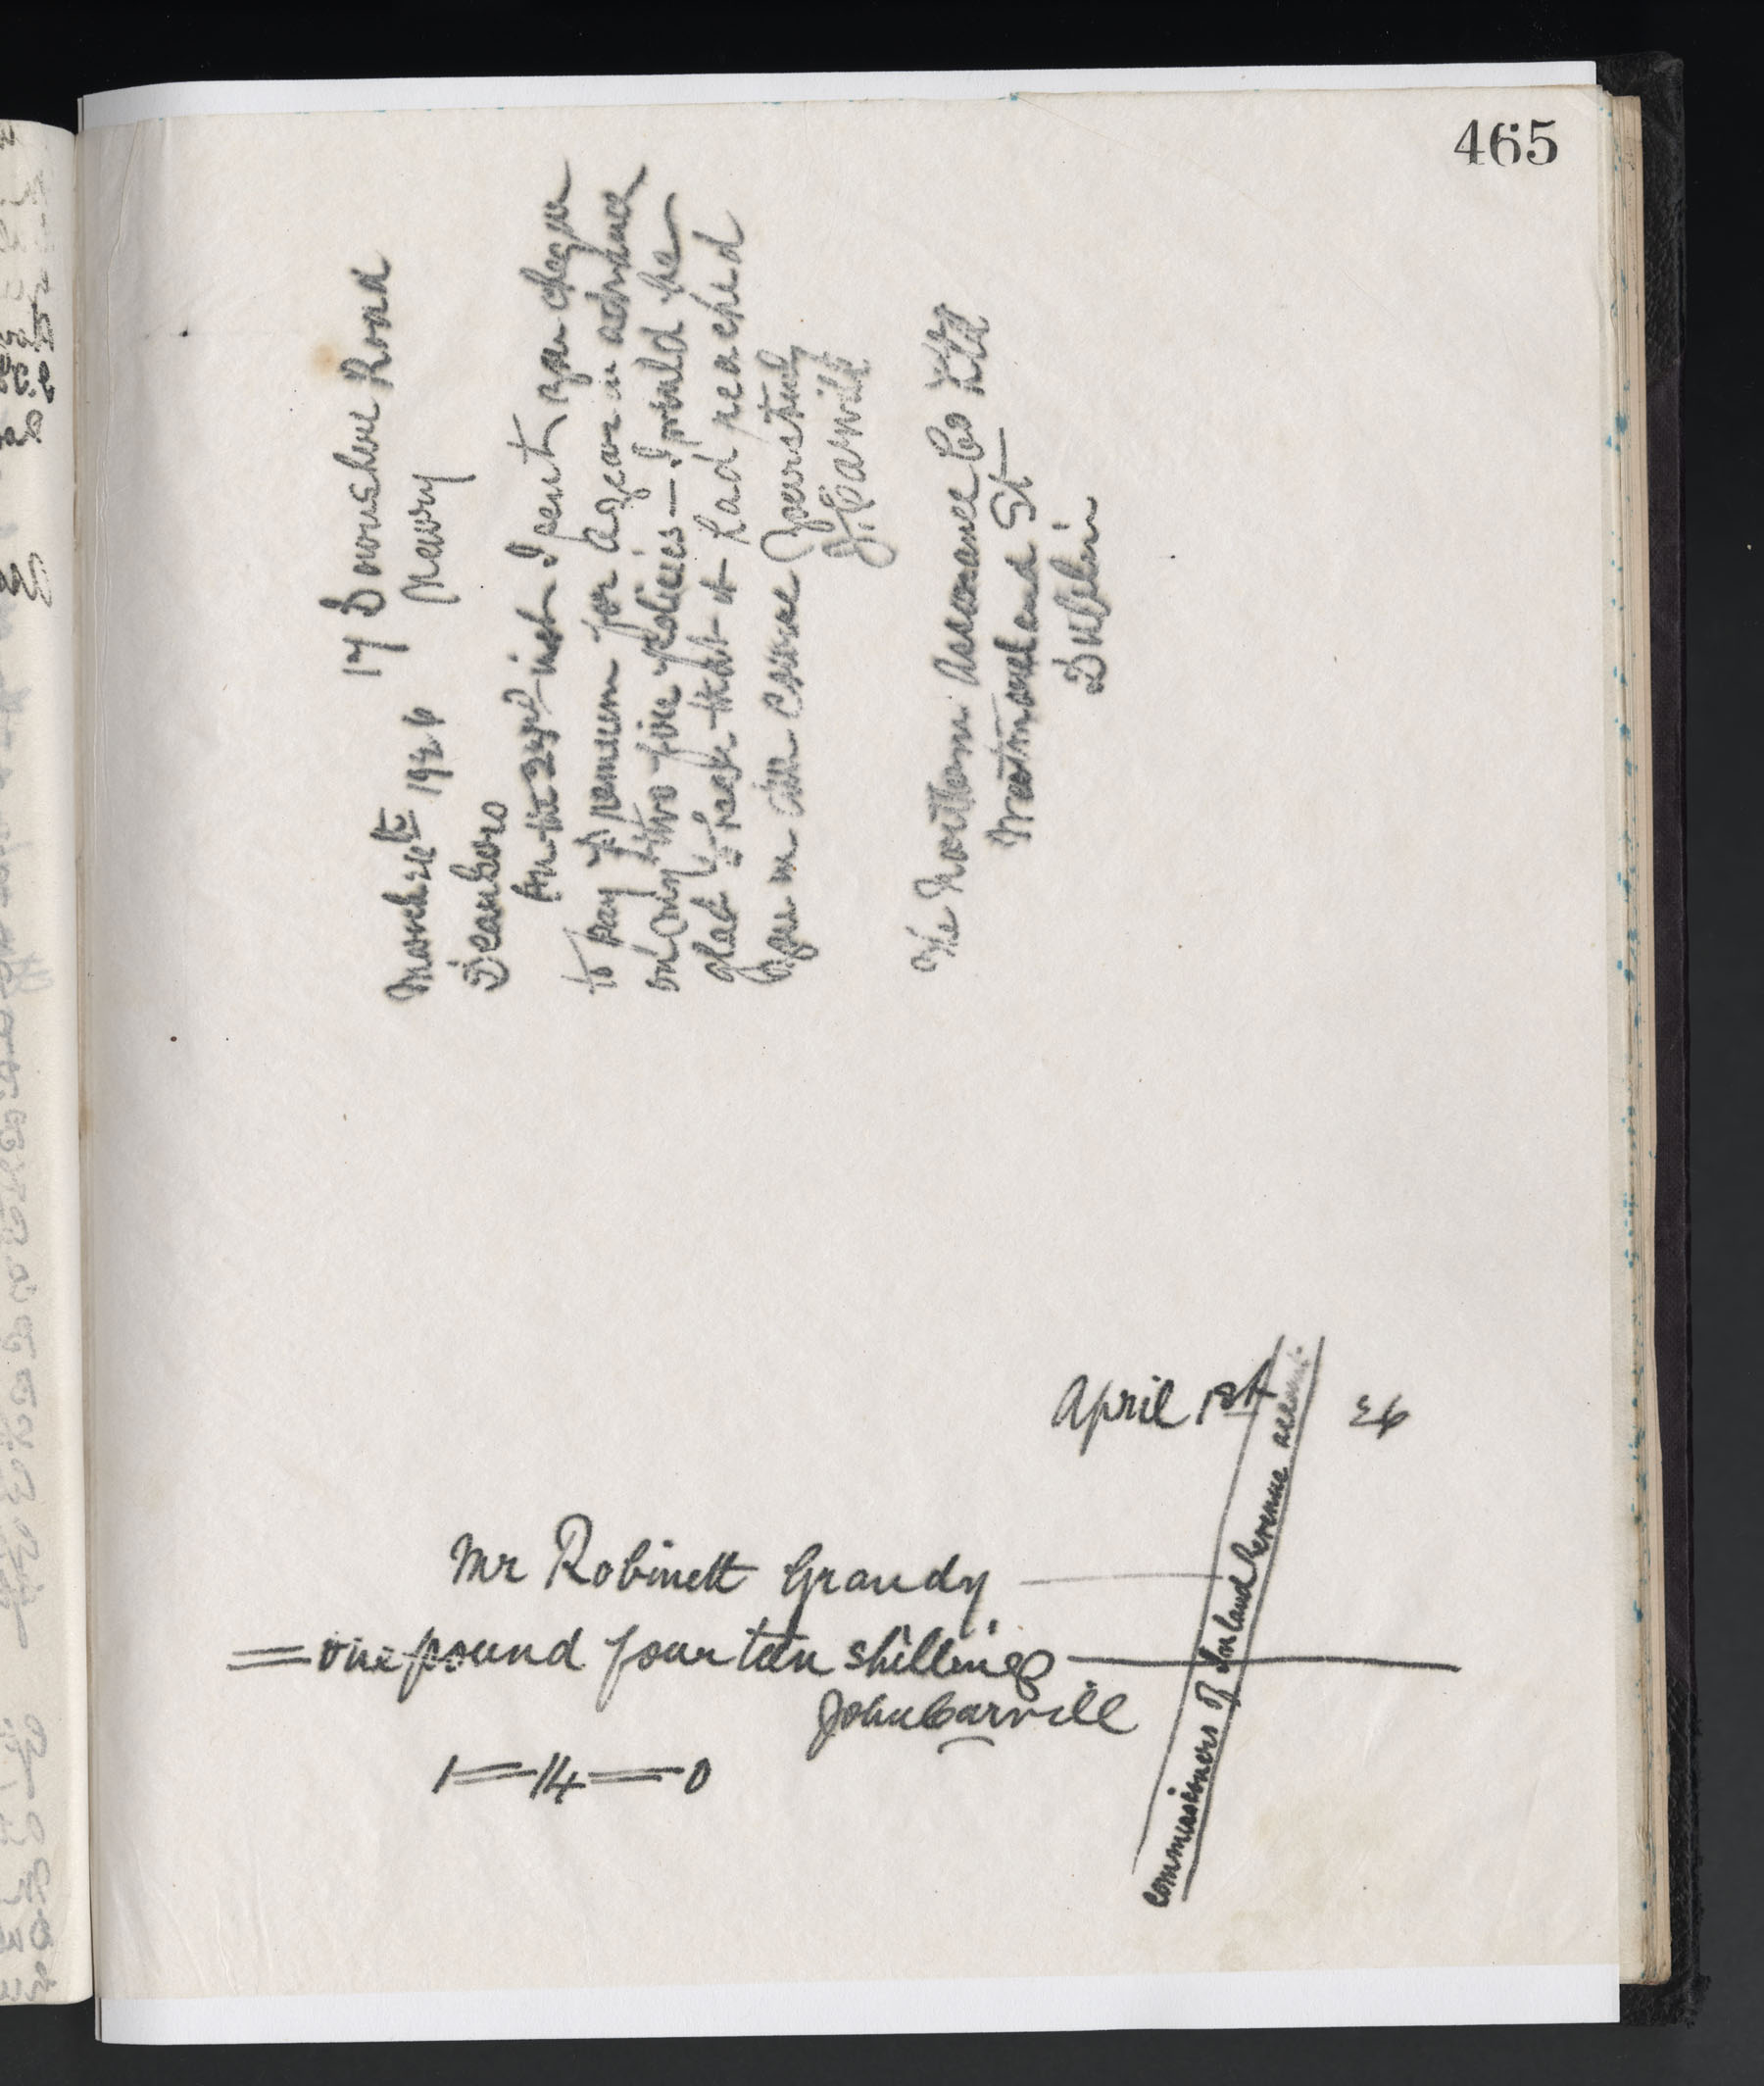 465
17 Downshire Road
Newry
March 26th 1926
Dear Sirs
On the 23rd inst I sent you cheque
to pay premium for a year in advance
on my two fire policies — I would be
glad to hear that it had reached
you in due course
Yours truly
J. Carvill
The Northern Assurance Co Ltd
Westmoreland St
Dublin
April 1st 26
Mr Robinett Grandy
one pound fourteen shillings
John Carvill
1 = 14 = 0
Commissioners of Inland Revenue account